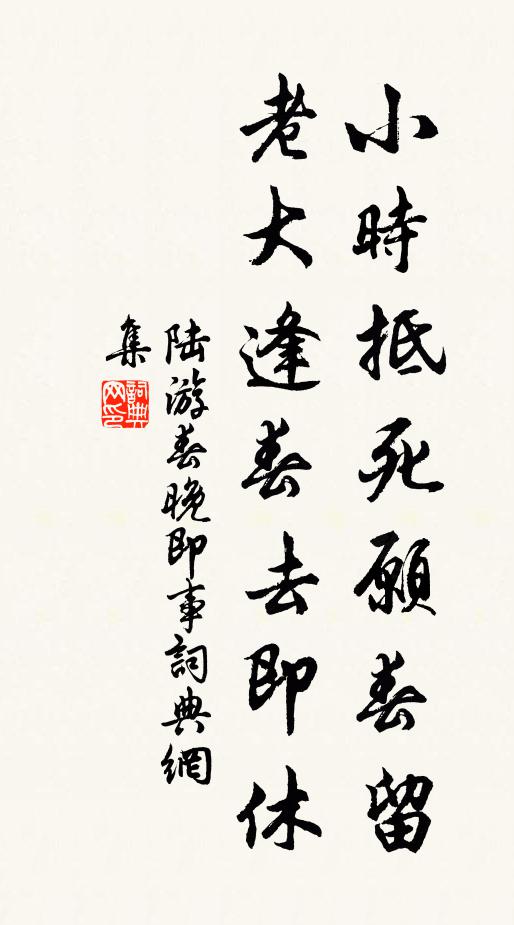 小時抵死願春留
老大逢春去即休
陸游春晚即事詞典網
集
詞典
网印